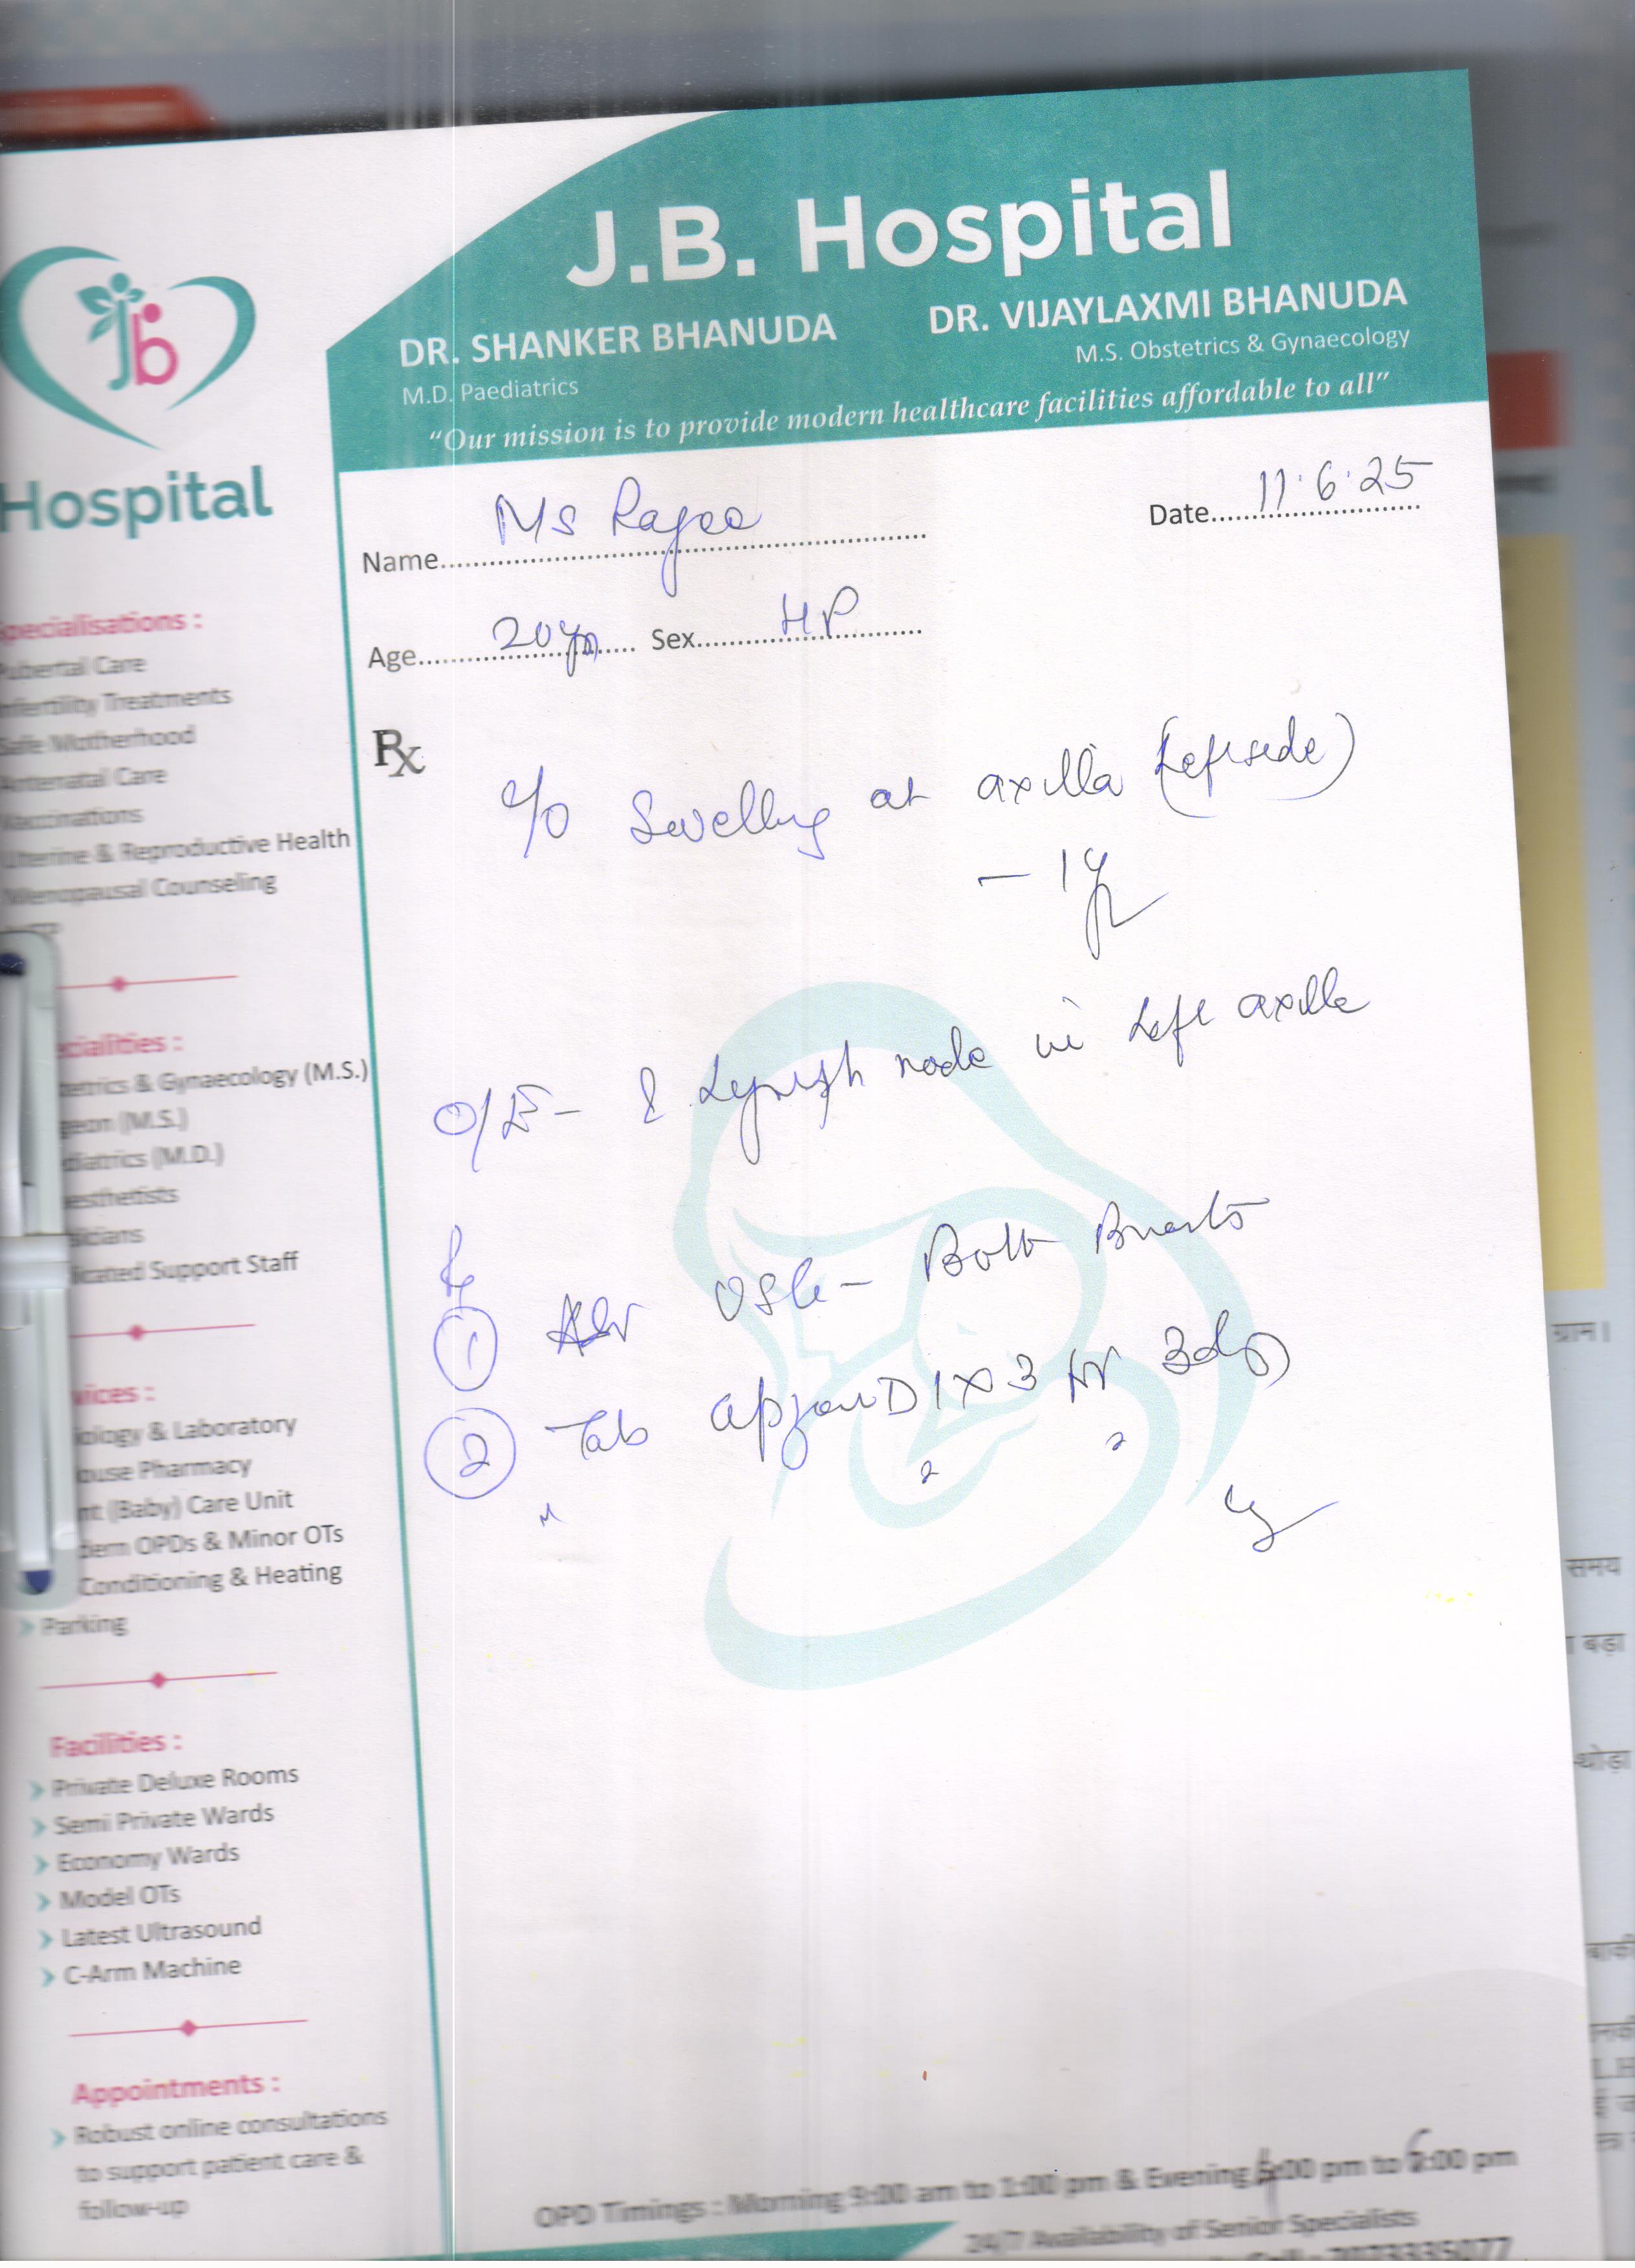 J.B. Hospital
DR. SHANKER BHANUDA
M.D. Paediatrics
DR. VIJAYLAXMI BHANUDA
M.S. Obstetrics & Gynaecology
"Our mission is to provide modern healthcare facilities affordable to all"
jb
Hospital
Name Ms
Date 11.6.25
Age 20yr Sex
Rx
c/o Swelling at axilla (Left side)
- 1yr
O/E - Lymph node in Left axilla
Rx
① Adv USG - Both Breasts
② Tab D 1x3 for 3 days
pecialisations :
Pubertal Care
nfertility Treatments
Safe Motherhood
Antenatal Care
Vaccinations
Uterine & Reproductive Health
Menopausal Counseling
cialities :
tetrics & Gynaecology (M.S.)
geon (M.S.)
diatrics (M.D.)
esthetists
sicians
licated Support Staff
vices :
iology & Laboratory
ouse Pharmacy
nt (Baby) Care Unit
dern OPDs & Minor OTs
Conditioning & Heating
Parking
Facilities :
Private Deluxe Rooms
Semi Private Wards
Economy Wards
Model OTs
Latest Ultrasound
C-Arm Machine
Appointments :
Robust online consultations
to support patient care &
follow-up
OPD Timings : Morning 9:00 am to 1:00 pm & Evening :00 pm to 6:00 pm
24/7 Availability of Senior Specialists
ग्राम।
समय
बड़ा
-थोड़ा